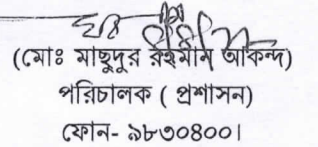 (মোঃ মাছুদুর রহমান আকন্দ)
পরিচালক ( প্রশাসন)
ফোন- ৯৮৩০৪০০।